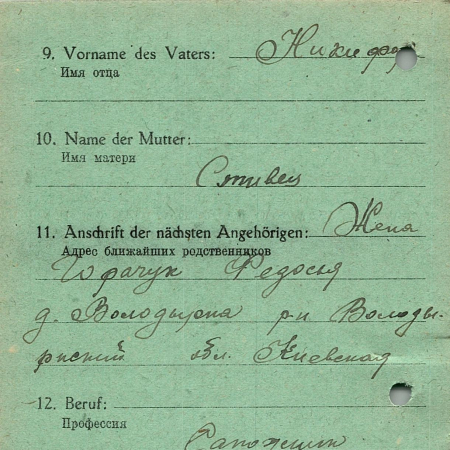 9. Vorname des Vaters: Никифор
Имя отца
10. Name der Mutter:
Имя матери
11. Anschrift der nächsten Angehörigen: Жена
Адрес ближайших родственников
Горачук Федосья
д. Володырка р-н Володы-
рский обл. Киевская
12. Beruf:
Профессия
Сапожник